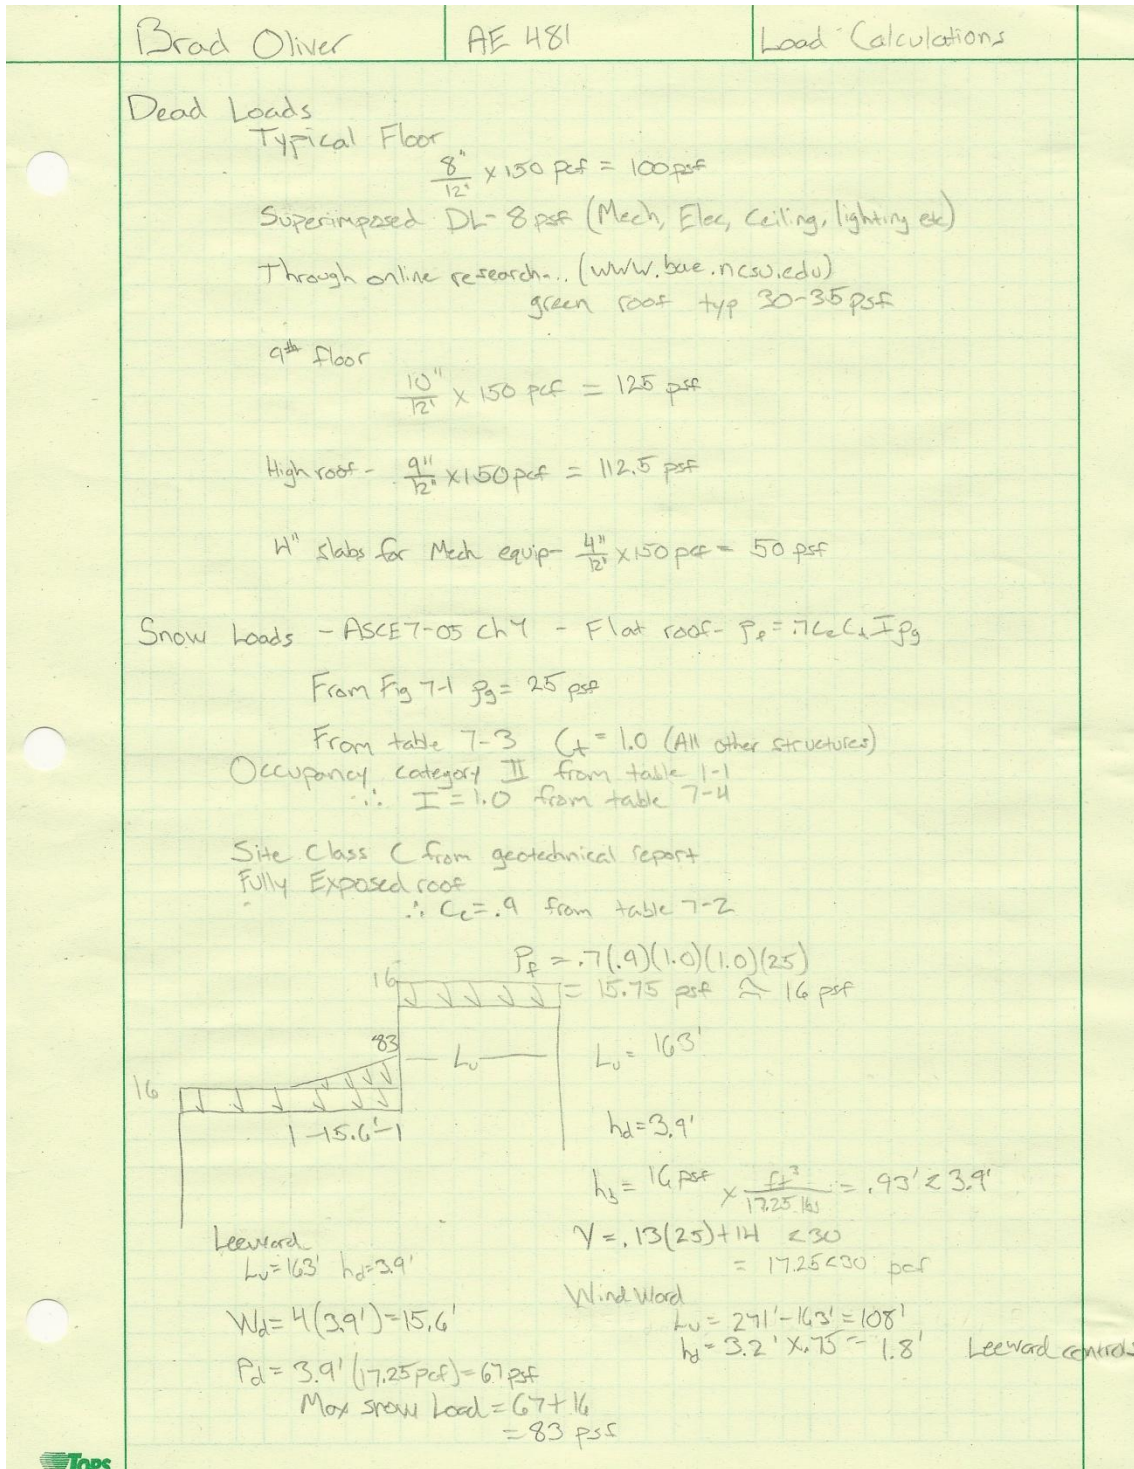 Brad Oliver AE 481 Load Calculations
Dead Loads
Typical Floor
8"/12' x 150 pcf = 100 psf
Superimposed DL- 8 psf (Mech, Elec, Ceiling, lighting etc)
Through online research... (www.bae.ncsu.edu)
green roof typ 30-35 psf
9th floor
10"/12' x 150 pcf = 125 psf
High roof - 9"/12" x 150 pcf = 112.5 psf
4" slabs for Mech equip- 4"/12' x 150 pcf = 50 psf
Snow Loads - ASCE7-05 Ch 7 - Flat roof- Pf = .7CeCtIpg
From Fig 7-1 Pg = 25 psf
From table 7-3 Ct = 1.0 (All other structures)
Occupancy category II from table 1-1
∴ I = 1.0 from table 7-4
Site Class C from geotechnical report
Fully Exposed roof
∴ Ce = .9 from table 7-2
Pf = .7(.9)(1.0)(1.0)(25)
16
= 15.75 psf ≈ 16 psf
83
Lu
Lu = 163'
16
15.6'
hd = 3.9'
hb = 16 psf x ft³/17.25 lbs = .93' < 3.9'
γ = .13(25)+14 < 30
= 17.25 < 30 pcf
Leeward
Lu = 163' hd = 3.9'
Wd = 4(3.9') = 15.6'
Pd = 3.9'(17.25 pcf) = 67 psf
Max snow Load = 67 + 16
= 83 psf
Wind Ward
Lu = 271' - 163' = 108'
hd = 3.2' x .75 = 1.8' Leeward controls
TOPS